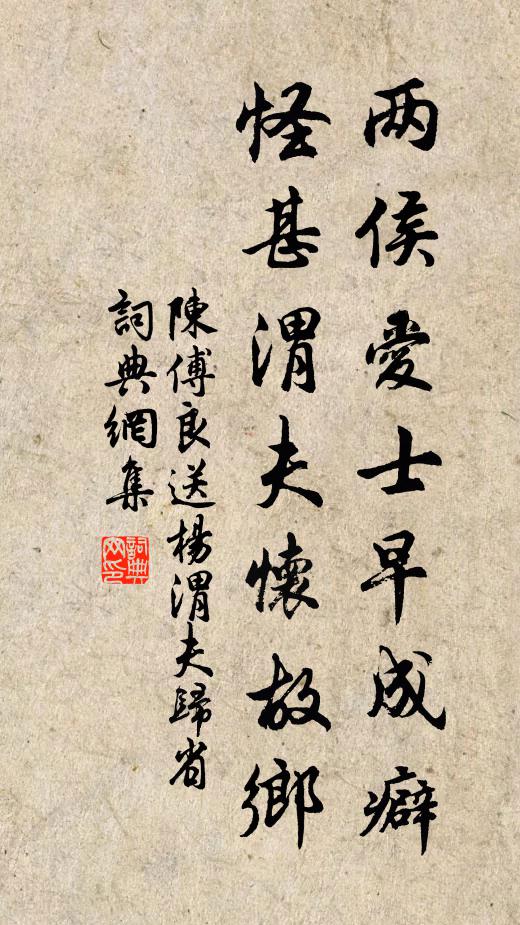 两侯愛士早成癖
怪甚渭夫懷故鄉
陳傅良送楊渭夫歸省
詞典網集
詞典网印